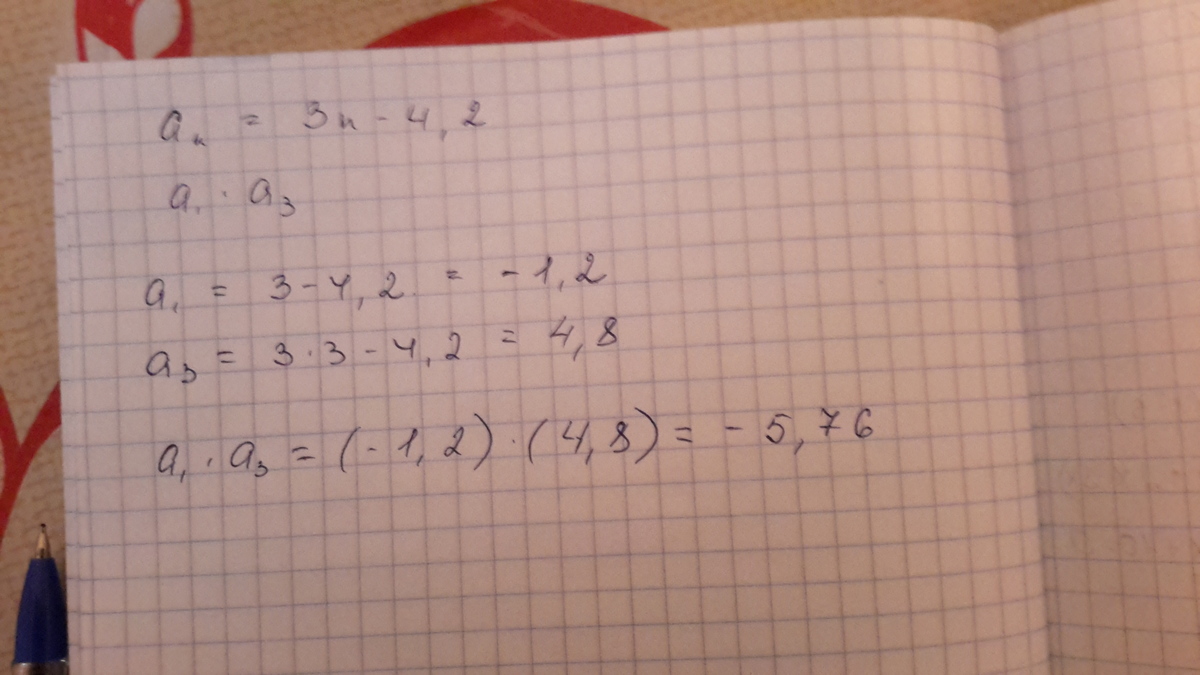 aₙ = 3n - 4,2
a₁ · a₃
a₁ = 3 - 4,2 = - 1,2
a₃ = 3 · 3 - 4,2 = 4,8
a₁ · a₃ = (- 1,2) · (4,8) = - 5,76